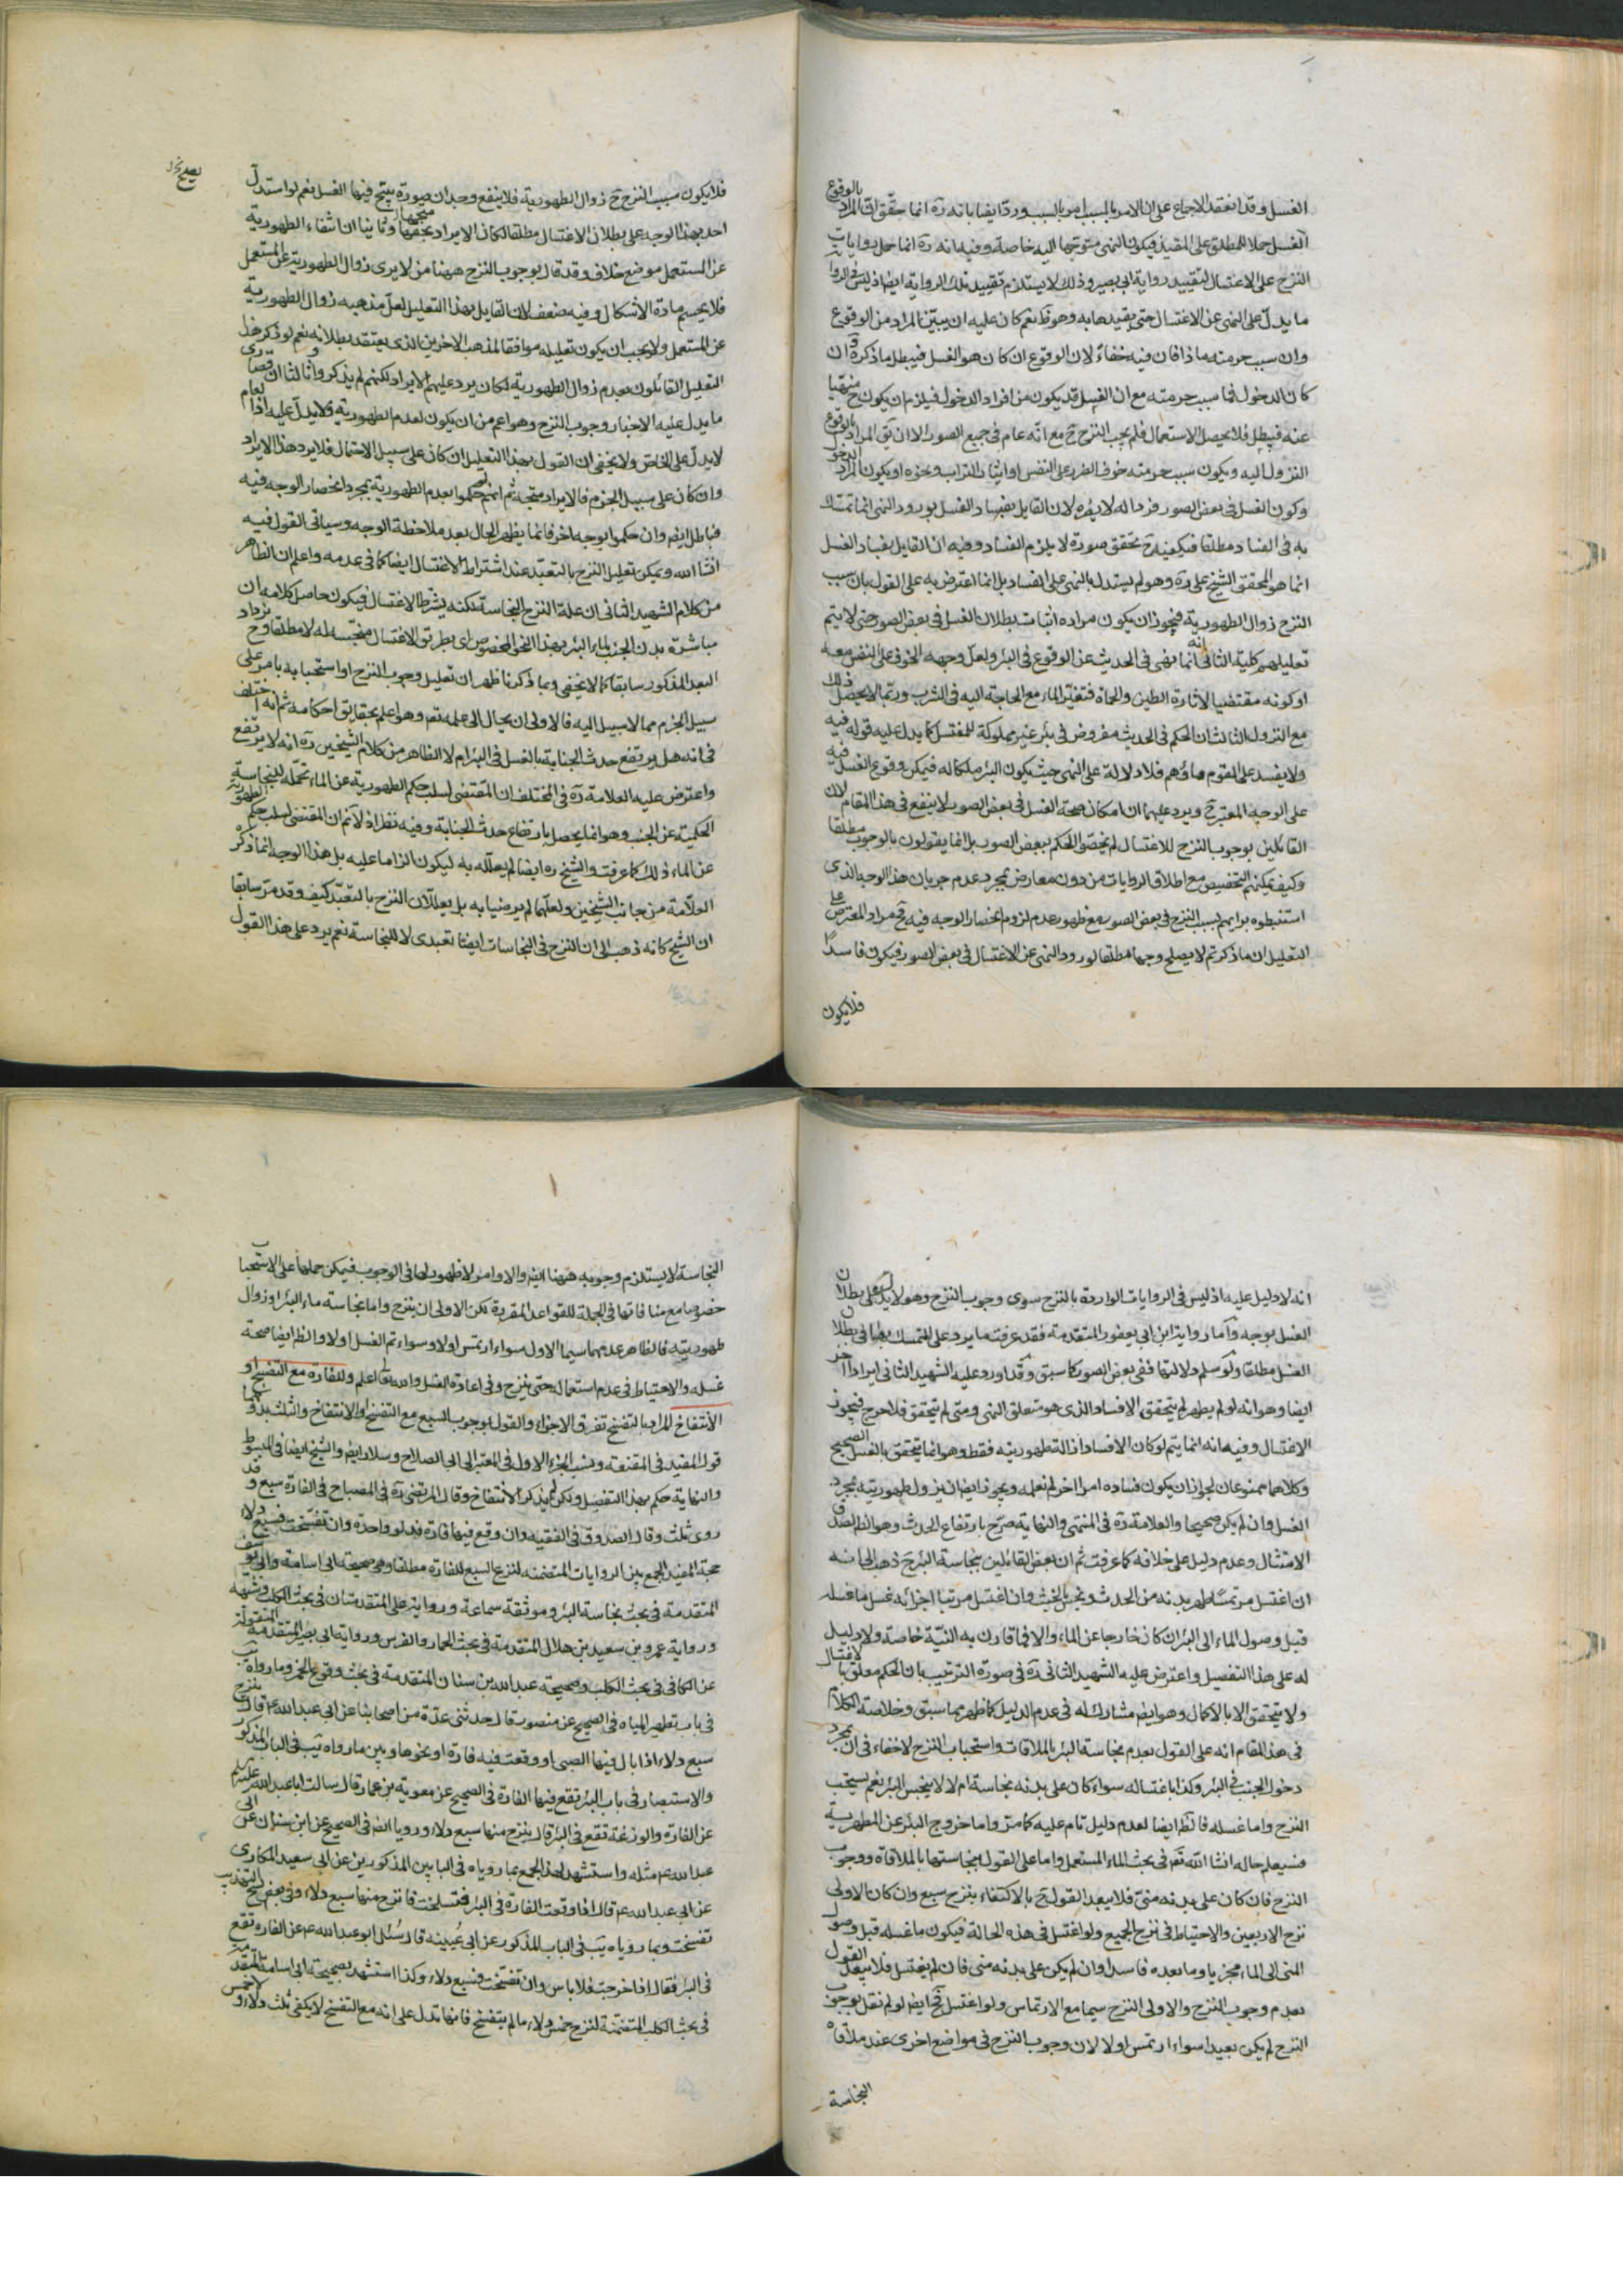 الغسل وقد انعقد الاجماع على ان الامر بالمسبب امر بالسبب ورد ايضا بانه ره انما حقق ان المراد بالوقوع
الغسل حملا للمطلق على المقيد فيكون النهى متوجها اليه خاصة وفيه انه ره انما حمل روايات
النزح على الاغتسال لتقييد رواية ابى بصير وذلك لا يستلزم تقييد تلك الرواية ايضا اذ ليس فى الروايات
ما يدل على النهى عن الاغتسال حتى يقيد هابه وهو ظ نعم كان عليه ان يبين المراد من الوقوع
وان سبب حرمته ماذا فان فيه خفاء لان الوقوع ان كان هو الغسل فيبطل ما ذكره وان
كان الدخول فما سبب حرمته مع ان الغسل قد يكون من افراد الدخول فيلزم ان يكون ح منهيا
عنه فيبطل فلا يحصل الاستعمال فلم يجب النزح ح مع انه عام فى جميع الصور الا ان يق المراد بالوقوع
النزول اليه ويكون سبب حرمته خوف الضرر على النفس او اثارة التراب ونحوه او يكون المراد الدخول
وكون الغسل فى بعض الصور فردا له لا يضره لان القايل بفساد الغسل بورود النهى انما تمسك
به فى الفساد مطلقا فيكفيه ح تحقق صورة لا يلزم الفساد وفيه ان القايل بفساد الغسل
انما هو المحقق الشيخ على ره وهو لم يستدل بالنهى على الفساد بل انما اعترض به على القول بان سبب
النزح زوال الطهورية فيجوز ان يكون مراده اثبات بطلان الغسل فى بعض الصور حتى لا يتم
تعليلهم كلية الثانى انه انما نهى فى الحديث عن الوقوع فى البئر ولعل وجهه الخوف على النفس معه
او كونه مقتضيا لاثارة الطين والحماة فتغير الماء مع الحاجة اليه فى الشرب وربما لا يحصل ذلك
مع النزول الثالث ان الحكم فى الحديث مفروض فى بئر غير مملوكة للمغتسل كما يدل عليه قوله فيه
ولا يفسد على القوم ماؤهم فلا دلالة على النهى حيث يكون البئر ملكا له فيمكن وقوع الغسل فيه
على الوجه المعتبر ح ويرد عليهما ان امكان صحة الغسل فى بعض الصور لا ينفع فى هذا المقام لان
القائلين بوجوب النزح للاغتسال لم يخصوا الحكم ببعض الصور بل انما يقولون بالوجوب مطلقا
وكيف يمكنهم التخصيص مع اطلاق الروايات من دون معارض بمجرد عدم جريان هذا الوجه الذى
استنبطوه برايهم بسبب النزح فى بعض الصور مع ظهور عدم لزوم انحصار الوجه فيه فح مراد المعترض على
التعليل ان ما ذكرتم لا يصلح وجها مطلقا لورود النهى عن الاغتسال فى بعض الصور فيكون فاسدا
فلا يكون
يصح خ ل
فلا يكون سبب النزح ح زوال الطهورية فلا ينفع وجدان صورة يصح فيها الغسل نعم لو استدل
احد بهذا الوجه على بطلان الاغتسال مطلقا لكان الايراد متجها وثانيا ان انتفاء الطهورية
عن المستعمل موضع خلاف وقد قال بوجوب النزح ههنا من لا يرى زوال الطهورية عن المستعمل
فلا يحسم مادة الاشكال وفيه ضعف لان القايل بهذا التعليل لعل مذهبه زوال الطهورية
عن المستعمل ولا يجب ان يكون تعليله موافقا لمذهب الاخرين الذى يعتقد بطلانه نعم لو ذكر هذا
التعليل القائلون بعدم زوال الطهورية لكان يرد عليهم الايراد لكنهم لم يذكروا وثالثا ان قصارى
ما يدل عليه الاخبار وجوب النزح وهو اعم من ان يكون لعدم الطهورية ولا يدل عليه اذ العام
لا يدل على الخاص ولا يخفى ان القول بهذا التعليل ان كان على سبيل الاحتمال فلا يرد هذا الايراد
وان كان على سبيل الجزم فالايراد متجه ثم انهم ان حكموا بعدم الطهورية بمجرد انحصار الوجه فيه
فباطل ايضا وان حكموا بوجه اخر فانما يظهر الحال بعد ملاحظة الوجه وسياتى القول فيه
انشاء الله ويمكن تعليل النزح بالتعبد عند اشتراط الاغتسال ايضا كما فى عدمه واعلم ان الظاهر
من كلام الشهيد الثانى ان علة النزح النجاسة لكنه يشترط الاغتسال فيكون حاصل كلامه ان
مباشرة بدن الجنب لماء البئر بهذا النحو المخصوص اى بطريق الاغتسال منجسة له لا مطلقا وح يزداد
البعد المذكور سابقا كما لا يخفى وبما ذكرنا ظهر ان تعليل وجوب النزح او استحبابه بامر على
سبيل الجزم مما لا سبيل اليه فالاولى ان يحال الى علمه تعم وهو اعلم بحقايق احكامه ثم انه اختلف
فى انه هل يرتفع حدث الجنابة بالغسل فى البئر ام لا الظاهر من كلام الشيخين ره انه لا يرتفع
واعترض عليه العلامة ره فى المختلف ان المقتضى لسلب حكم الطهورية عن الماء تحمله للنجاسة
الحكمية عن الجنب وهو انما يحصل بارتفاع حدث الجنابة وفيه نظر اذ لا نم ان المقتضى لسلب حكم الطهورية
عن الماء ذلك كما عرفت والشيخ ره ايضا لم يعلله به ليكون الزاما عليه بل هذا الوجه انما ذكره
العلامة من جانب الشيخين ولعلهما لم يرضيا به بل يعللان النزح بالتعبد كيف وقد مر سابقا
ان الشيخ كانه ذهب الى ان النزح فى النجاسات ايضا تعبدى لا للنجاسة نعم يرد على هذا القول
انه لا دليل عليه اذ ليس فى الروايات الواردة بالنزح سوى وجوب النزح وهو لا يدل على بطلان
الغسل بوجه واما رواية ابن ابى يعفور المتقدمة فقد عرفت ما يرد على التمسك بها فى بطلان
الغسل مطلقا ولو سلم دلالتها ففى بعض الصور كما سبق وقد اورد عليه الشهيد الثانى ايرادا اخر
ايضا وهو انه لو لم يطهر لم يتحقق الافساد الذى هو متعلق النهى ومتى لم يتحقق فلا حرج فيجوز
الاغتسال وفيه انه انما يتم لو كان الافساد ازالة طهوريته فقط وهو انما يتحقق بالغسل الصحيح
وكلاهما ممنوعان لجواز ان يكون فساده امرا اخر لم نعلمه ويجوز ايضا ان يزول طهوريته بمجرد
الغسل وان لم يكن صحيحا والعلامة ره فى المنتهى والنهاية صرح بارتفاع الحدث وهو الظ لصدق
الامتثال وعدم دليل على خلافه كما عرفت ثم ان بعض القائلين بنجاسة البئر ح ذهب الى انه
ان اغتسل مرتمسا طهر بدنه من الحدث ونجس بالخبث وان اغتسل مرتبا اجزائه غسل ما غسله
قبل وصول الماء الى البئر ان كان خارجا عن الماء والا فما قارن به النية خاصة ولا دليل
له على هذا التفصيل واعترض عليه الشهيد الثانى ره فى صورة الترتيب بان الحكم معلق بالاغتسال
ولا يتحقق الا بالاكمال وهو ايضا مشارك له فى عدم الدليل كما ظهر مما سبق وخلاصة الكلام
فى هذا المقام انه على القول بعدم نجاسة البئر بالملاقات واستحباب النزح لا خفاء فى ان بمجرد
دخول الجنب فى البئر وكذا باغتساله سواء كان على بدنه نجاسة ام لا لا ينجس البئر نعم يستحب
النزح واما غسله فالظ ايضا لعدم دليل تام عليه كما مر واما خروج البئر عن المطهرية
فسيعلم حاله انشاء الله تعم فى بحث الماء المستعمل واما على القول بنجاستها بالملاقاة ووجوب
النزح فان كان على بدنه منى فلا يبعد القول ح بالاكتفاء بنزح سبع وان كان الاولى
نزح الاربعين والاحتياط فى نزح الجميع ولو اغتسل فى هذه الحالة فيكون ما غسله قبل وصول
المنى الى الماء مجزيا وما بعده فاسدا وان لم يكن على بدنه منى فان لم يغتسل فلا يبعد القول
بعدم وجوب النزح والاولى النزح سيما مع الارتماس ولو اغتسل فح ايضا لو لم نقل بوجوب
النزح لم يكن بعيدا سواء ارتمس اولا لان وجوب النزح فى مواضع اخرى عند ملاقاة
النجاسة
النجاسة لا يستلزم وجوبه ههنا ايضا والاوامر لا ظهور لها فى الوجوب فيمكن حملها على الاستحباب
خصوصا مع منافاتها فى الجملة للقواعد المقررة لكن الاولى ان ينزح واما نجاسة ماء البئر او زوال
طهوريته فالظاهر عدمهما سيما الاول سواء ارتمس اولا وسواء تم الغسل اولا والظ ايضا صحة
غسله والاحتياط فى عدم استعماله حتى ينزح وفى اعادة الغسل والله تعا اعلم وللفارة مع التفسخ او
الانتفاخ المراد بالتفسخ تفرق الاجزاء والقول بوجوب السبع مع التفسخ او الانتفاخ والثلث بدونهما
قول المفيد فى المقنعة ونسب الجزء الاول فى المعتبر الى ابى الصلاح وسلار ايضا والشيخ ايضا فى المبسوط
والنهاية حكم بهذا التفصيل ولكن لم يذكر الانتفاخ وقال المرتضى ره فى المصباح فى الفارة سبع وقد
روى ثلث وقال الصدوق فى الفقيه وان وقع فيها فارة فدلو واحدة وان تفسخت فسبع دلاء
حجة المفيد الجمع بين الروايات المتضمنه لنزح السبع للفارة مطلقا وهى صحيحة ابى اسامة وابى يوسف
المتقدمة فى بحث نجاسة البئر وموثقة سماعة ورواية على المتقدمتان فى بحث الكلب وشبهه
ورواية عمرو بن سعيد بن هلال المتقدمة فى بحث الحمار والفرس ورواية ابى بصير المتقدمة المنقولة
عن الكافى فى بحث الكلب وصحيحة عبد الله بن سنان المتقدمة فى بحث وقوع الخمر وما رواه يب
فى باب تطهير المياه فى الصحيح عن منصور قال حدثنى عدة من اصحابنا عن ابى عبد الله ع قال ينزح
سبع دلاء اذا بال فيها الصبى او وقعت فيه فارة او نحوها وبين ما رواه يب فى الباب المذكور
والاستبصار فى باب البئر تقع فيها الفارة فى الصحيح عن معوية بن عمار قال سالت ابا عبد الله عليه السلم
عن الفارة والوزغة تقع فى البئر قال ينزح منها سبع دلاء ورويا ايضا فى الصحيح عن ابن سنان عن ابى
عبد الله ع مثله واستشهد لهذا الجمع بما روياه فى البابين المذكورين عن ابى سعيد المكارى
عن ابى عبد الله ع قال اذا وقعت الفارة فى البئر فتسلخت فانزح منها سبع دلاء وفى بعض نسخ التهذيب
تفسخت وبما رواه يب فى الباب المذكور عن ابى عيينه قال سئل ابو عبد الله ع عن الفاره تقع
فى البئر فقال اذا خرجت فلا باس وان تفسخت فسبع دلاء وكذا استشهد بصحيحة ابى اسامة المتقدمة
فى بحث الكلب المتضمنة لنزح خمس دلاء ما لم يتفسخ فانها تدل على انه مع التفسخ لا يكفى ثلث دلاء و